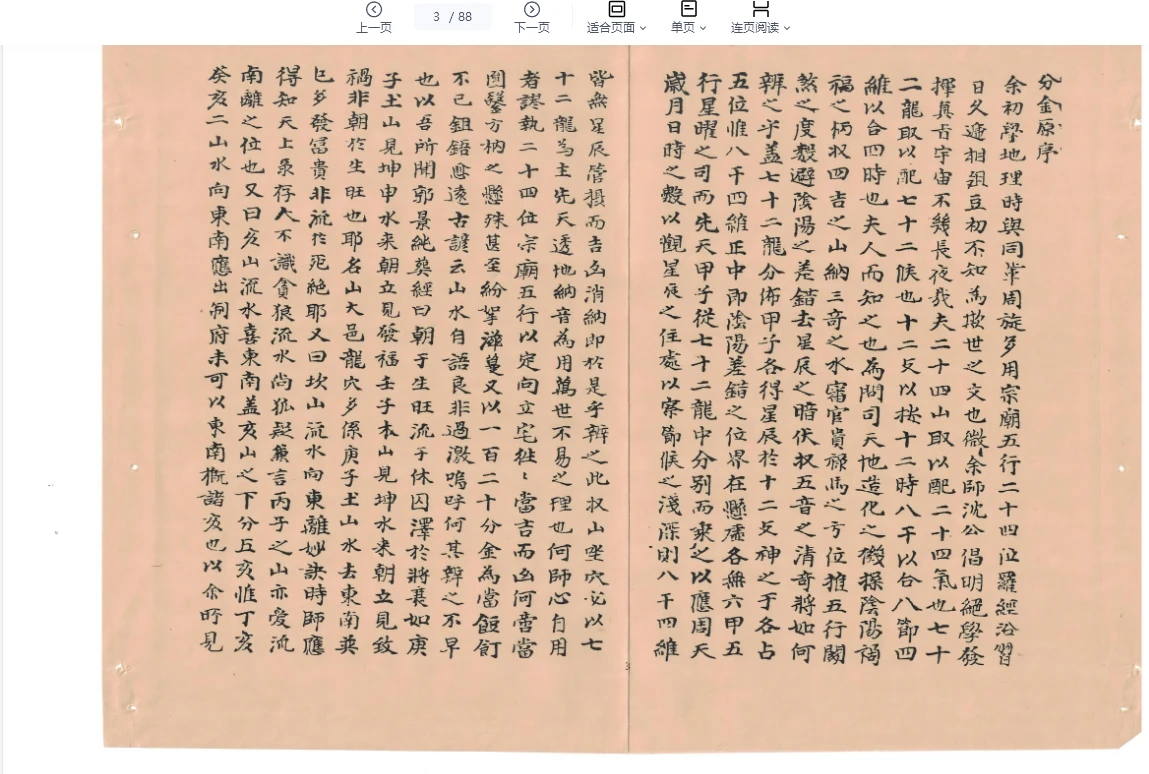 上一页
3 / 88
下一页
适合页面
单页
连页阅读
分金原序
余初學地理時與同輩周旋多用宗廟五行二十四位羅經沿習
日久遞相俎豆初不知為救世之文也微余師沈公倡明絕學發
揮真旨宇宙不幾長夜哉夫二十四山取以配二十四氣也七十
二龍取以配七十二候也十二支以按十二時八干以合八節四
維以合四時也夫人而知之也為問司天地造化之機操陰陽禍
福之柄收四吉之山納三奇之水審官貴祿馬之方位推五行關
煞之度數避陰陽之差錯去星辰之暗伏收五音之清奇將如何
辨之乎蓋七十二龍分佈甲子各得星辰於十二支神之于各占
五位惟八干四維正中即陰陽差錯之位界在懸虛各無六甲五
行星曜之司而先天甲子從七十二龍中分別而来之以應周天
歲月日時之數以觀星辰之住處以察節候之淺深則八干四維
皆無星辰管摄而吉凶消納即於是乎辨之此収山坐穴必以七
十二龍為主先天透地納音為用萬世不易之理也何師心自用
者謬執二十四位宗廟五行以定向立宅往〻當吉而凶何啻當
圆鑿方枘之懸殊甚至紛挐滋蔓又以一百二十分金為當餖飣
不已鉏鋙愈遠古諺云山水自語良非過激嗚呼何其辨之不早
也以吾所聞郭景純葬經曰朝于生旺流于休囚澤於將衰如庚
子土山見坤申水来朝立見發福壬子本山見坤水来朝立見致
禍非朝於生旺也耶名山大邑龍穴多係庚子土山水去東南英
乜多發富貴非流於死絕耶又曰坎山流水向東離妙訣時師應
得知天上泉存人不識貪狼流水尚狐疑蓋言丙子之山亦愛流
南離之位也又曰亥山流水喜東南盖亥山之下分五亥惟丁亥
癸亥二山水向東南應出祠府未可以東南概諸亥也以余所見
3